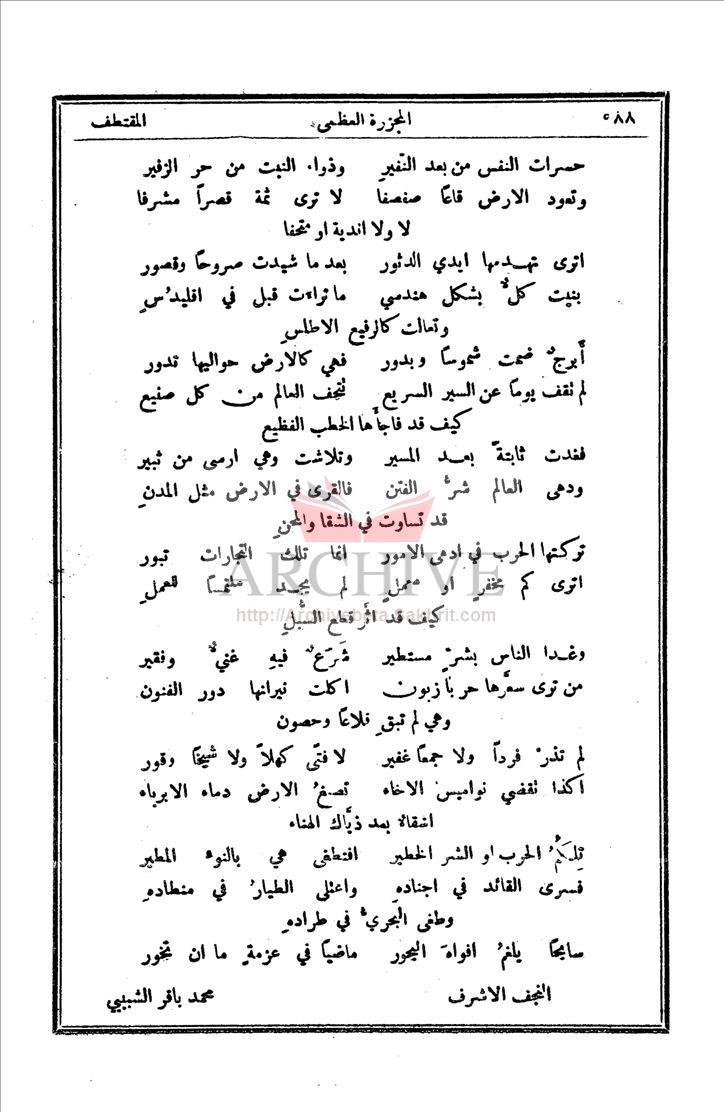 ٥٨٨ المجزرة العظمى المقتطف
حسرات النفس من بعد النفيرِ وذواء النبت من حر الزفير
وتعود الارض قاعًا صفصفا لا ترى ثمة قصراً مشرفا
لا ولا اندية او متحفا
اترى تهدمها ايدي الدثور بعد ما شيدت صروحًا وقصور
بنيت كلٌّ بشكل هندسي ما تراءت قبل في اقليدُسِ
وتعالت كالرفيع الاطلسِ
أَبرجٌ ضمت شموسًا وبدور فهي كالارض حواليها تدور
لم تقف يومًا عن السير السريع تتحف العالم من كل صنيع
كيف قد فاجأَها الخطب الفظيع
فغدت ثابتةً بعد المسير وتلاشت وهي ارسى من ثبير
ودهى العالم شرُّ الفتن فالقرى في الارض مثل المدنِ
قد تساوت في الشقا والمحنِ
تركتها الحرب في ادهى الامور انما تلك التجارات تبور
اترى كم مخفرٍ او معملٍ لم يجد ملتمسًا للعملِ
كيف قد اثَّر قطع السُّبُلِ
ARCHIVE
http://Archivebeta.Sakhrit.com
وغدا الناس بشرٍّ مستطير شَرَعٌ فيهِ غنيٌّ وفقير
من ترى سعَّرها حربا زبون اكلت نيرانها دور الفنون
وهي لم تبقِ قلاعًا وحصون
لم تذرْ فرداً ولا جمعًا غفير لا فتًى كهلاً ولا شيخًا وقور
اكذا تقضي نواميس الاخاء تصبغُ الارض دماء الابرياء
اشقاءٌ بعد ذيَّاك الهناء
تِلكُمُ الحرب او الشر الخطير افتطفى هي بالنوء المطير
فسرى القائد في اجنادهِ واعتلى الطيارُ في منطادهِ
وطفى البحريُّ في طرادهِ
سابحًا يلغمُ افواهَ البحور ماضيًا في عزمةٍ ما ان تخور
النجف الاشرف محمد باقر الشبيبي